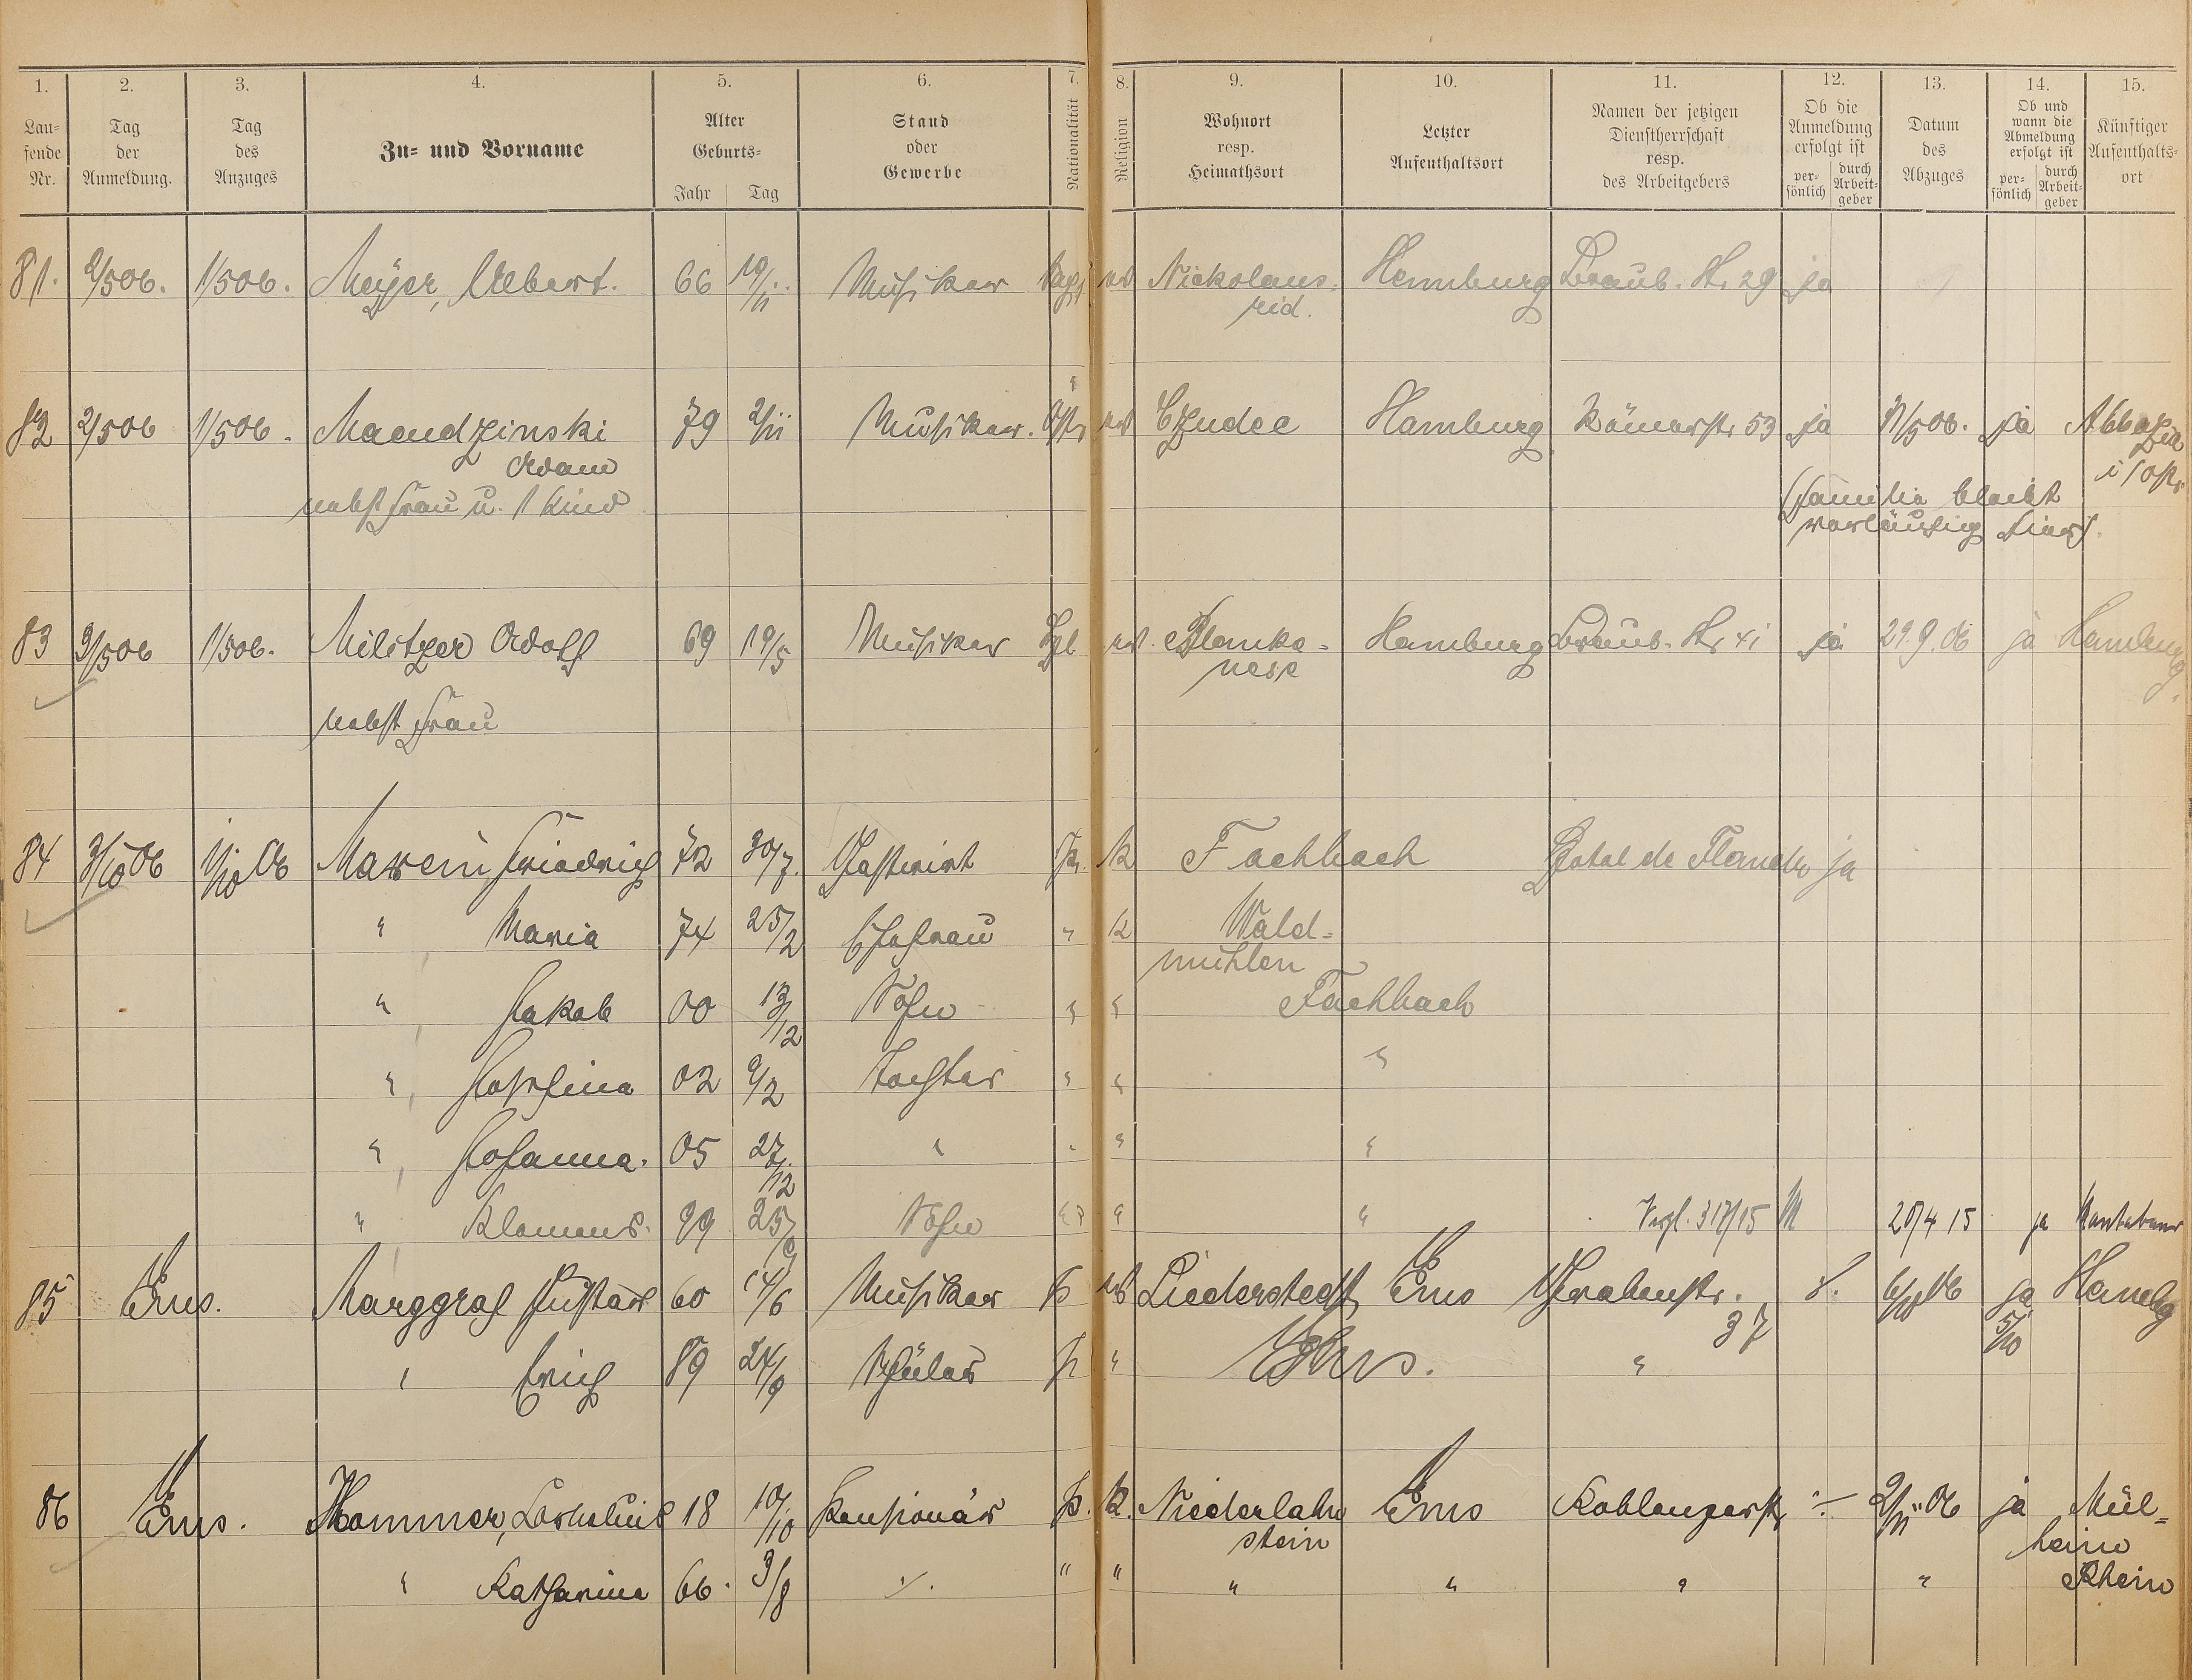 1. 2. 3. 4. 5. 6. 7. 8. 9. 10. 11. 12. 13. 14. 15.
Lau-
fende
Nr.
Tag
der
Anmeldung.
Tag
des
Anzuges
Zu- und Vorname
Alter
Geburts-
Jahr Tag
Stand
oder
Gewerbe
Nationalität
Religion
Wohnort
resp.
Heimathsort
Letzter
Aufenthaltsort
Namen der jetzigen
Dienstherrschaft
resp.
des Arbeitgebers
Ob die
Anmeldung
erfolgt ist
per-
sönlich
durch
Arbeit-
geber
Datum
des
Abzuges
Ob und
wann die
Abmeldung
erfolgt ist
per-
sönlich
durch
Arbeit-
geber
Künftiger
Aufenthalts-
ort
81. 2/5 06. 1/5 06. Meyer, Albert. 66 Musiker Nickolaus- Hamburg Braub. Str. 29 ja
rid.
82 2/5 06 1/5 06. Maendzinski 79 2/11 Musiker. Östr Czudec Hamburg Römerstr 53 ja 11/5 06. ja Abbazia
Adam i/Östr
nebst Frau u. 1 Kind (Familie bleibt
vorläufig hier).
83 3/5 06 1/5 06. Militzer Adolf 69 19/5 Musiker Blanke- Hamburg Braub. Str 41 ja 29.9.06 ja Hamburg.
nese
nebst Frau
84 3/10 06 1/10 06 Maxein Friedrich 72 30/7. Gastwirt Pr. K Fachbach Hotel de Flandr ja
" Maria 74 25/2 Ehefrau " K Wald-
mühlen
" Jakob 00 13/12 Sohn " " Fachbach
" Josefina 02 9/2 Tochter " " "
" Johanna. 05 27/12 " " " "
" Klemens. 99 25/9 Sohn " " " Vrgl. 317/15 20/4 15 ja Montabaur
85 Ems. Marggraf Gustav 60 14/6 Musiker P Liederstedt Ems Grabenstr. 6/10 06 ja Hambg
37 5/10
" Erich 89 24/9 Schüler P " Ems. "
86 Ems. Hommer, Cornelius 18 10/10 Pensionär P. K. Niederlahn Ems Koblenzerstr ./. 2/11 06 ja Mül-
stein heim
" Katharina 66. 3/8 ./. " " " " " " Rhein